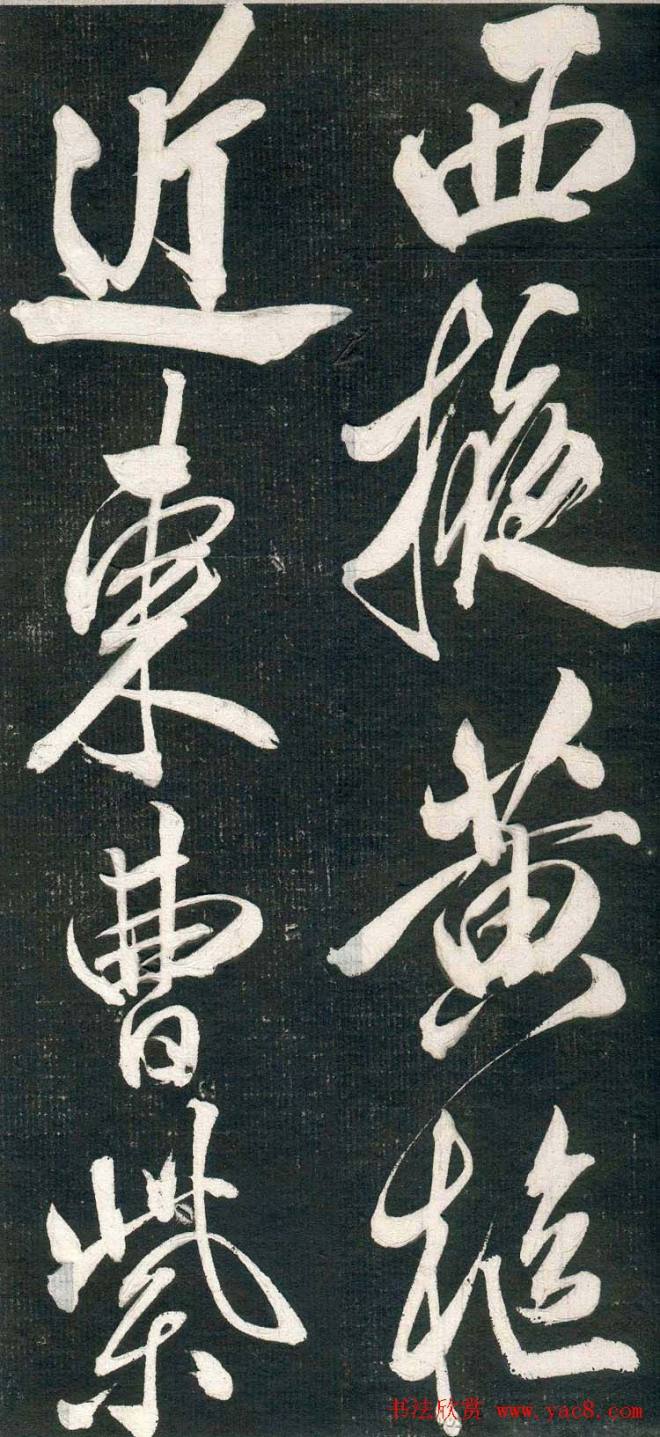 西掖黄樞
近東曹紫
书法欣赏 www.yac8.com